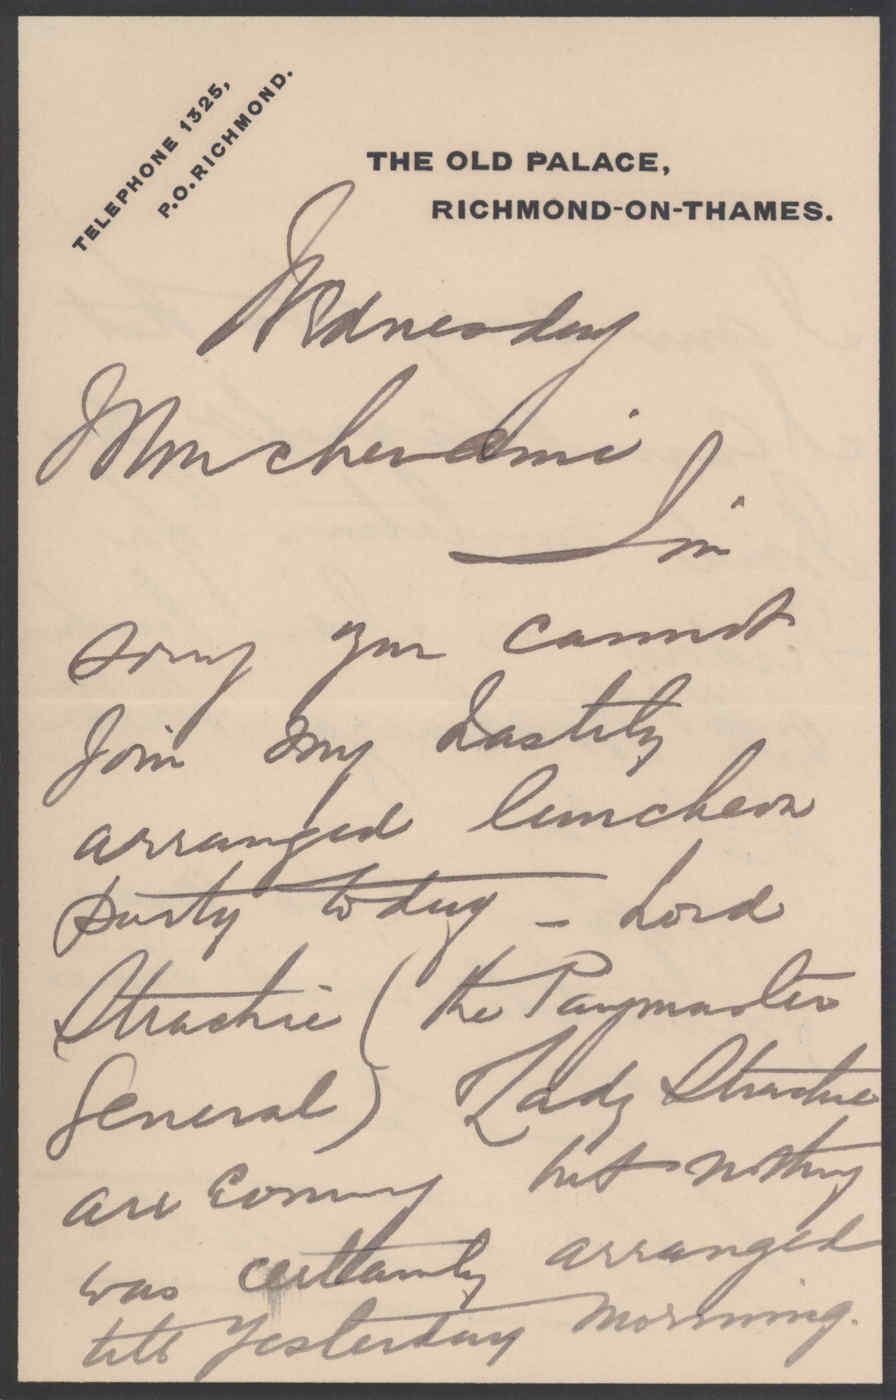 TELEPHONE 1325,
P.O. RICHMOND.
THE OLD PALACE,
RICHMOND-ON-THAMES.
Wednesday
Mon cher ami
I'm
sorry you cannot
join my hastily
arranged luncheon
party today – Lord
Strachie (the Paymaster
General) Lady Strachie
are coming but nothing
was certainly arranged
till yesterday morning.